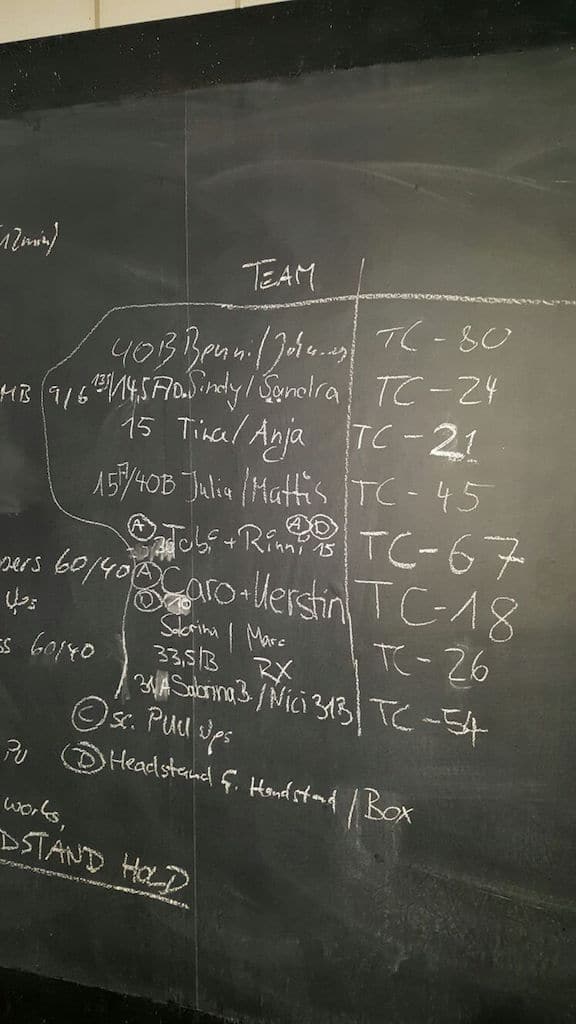 12min)
TEAM
40B Benni/ TC-80
MB 9/6 135/14,5 A D. Sindy/Sandra TC-24
15 Tina/Anja TC-21
15 A/40B Julia/Mattis TC-45
A Tobi + Rinni A D 15 TC-67
pers 60/40 A D Caro + Kerstin TC-18
Ups
Sabrina / Marc TC-26
ss 60/40 33,5/B RX
31A Sabrina B./Nici 31B TC-54
C sc. Pull Ups
PU D Headstand f. Handstand / Box
works,
DSTAND HOLD